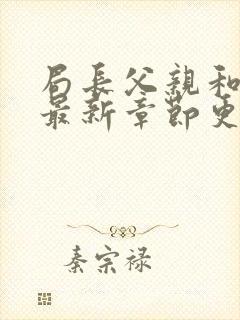 局長父親和
最新章節更
秦宗禄